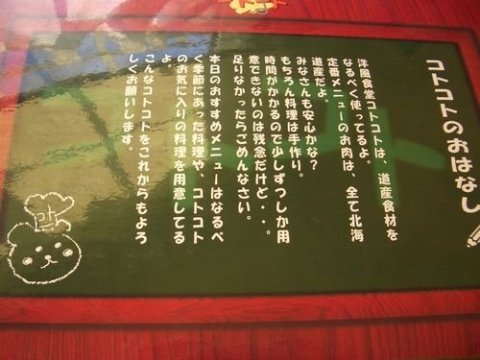 コトコトのおはなし
洋風食堂コトコトは、道産食材を
なるべく使ってるよ。
定番メニューのお肉は、全て北海
道産だよ。
みなさんも安心かな？
もちろん料理は手作り。
時間がかかるので少しずつしか用
意できないのは残念だけど・・。
足りなかったらごめんなさい。
本日のおすすめメニューはなるべ
く季節にあった料理や、コトコト
のお気に入りの料理を用意してる
よ。
こんなコトコトをこれからもよろ
しくお願いします。